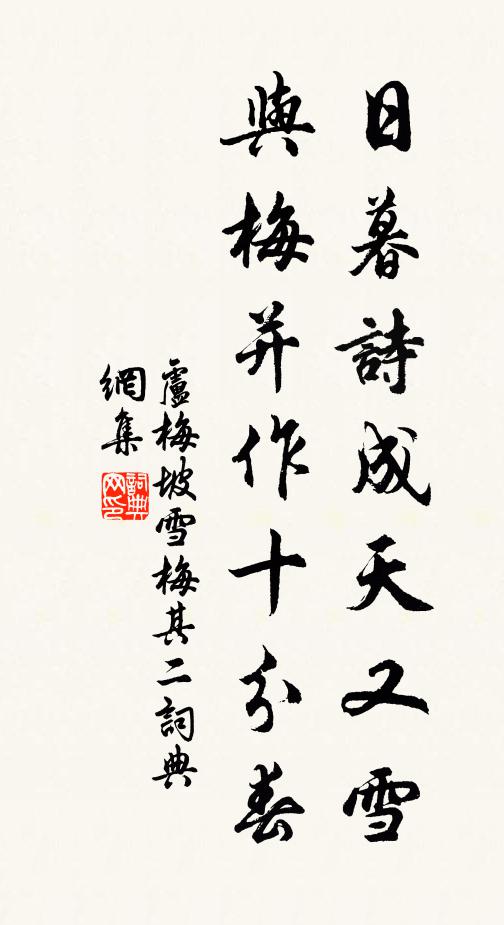 日暮詩成天又雪
與梅并作十分春
盧梅坡雪梅其二詞典
網集
詞典
网印